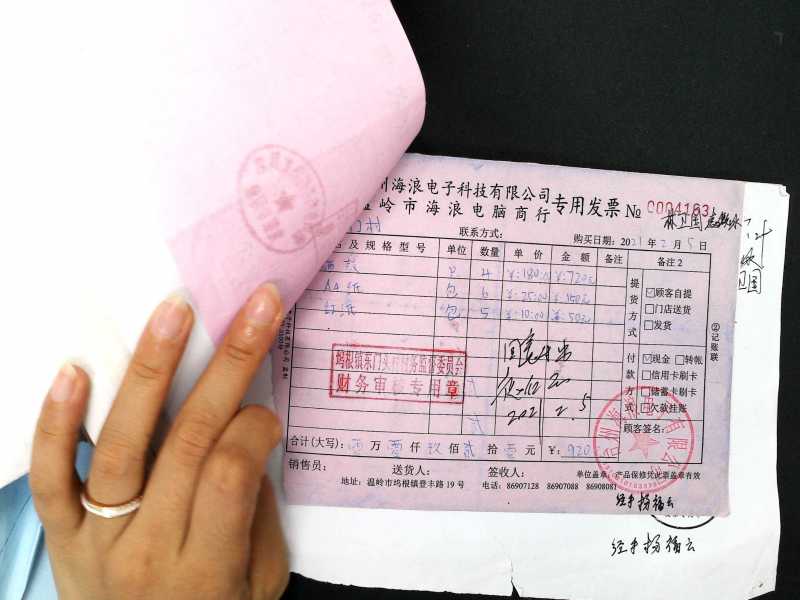 州海浪电子科技有限公司
岭市海浪电脑商行 专用发票 № 0004163
村 联系方式: 购买日期: 2021年2月5日
及规格型号 单位 数量 单价 金额 备注 备注2
4 ¥:180.00 ¥:720元
A4纸 包 6 ¥:25.00 ¥:150元
红纸 包 5 ¥:10.00 ¥:50元
提货方式
顾客自提
门店送货
发货
付款方式
现金 转帐
信用卡刷卡
储蓄卡刷卡
欠款挂账
顾客签名:
②记账联
坞根镇东门头村村务监督委员会
财务审核专用章
2021.2.5
合计(大写): 万 仟 玖佰 贰拾 元 ¥: 920
销售员: 送货人: 签收人: 单位盖章: 产品保修凭此票盖章有效
地址: 温岭市坞根镇登丰路19号 电话: 86907128 86907088 86908081
林卫国
卫国
经手 杨福云
经手 杨福云